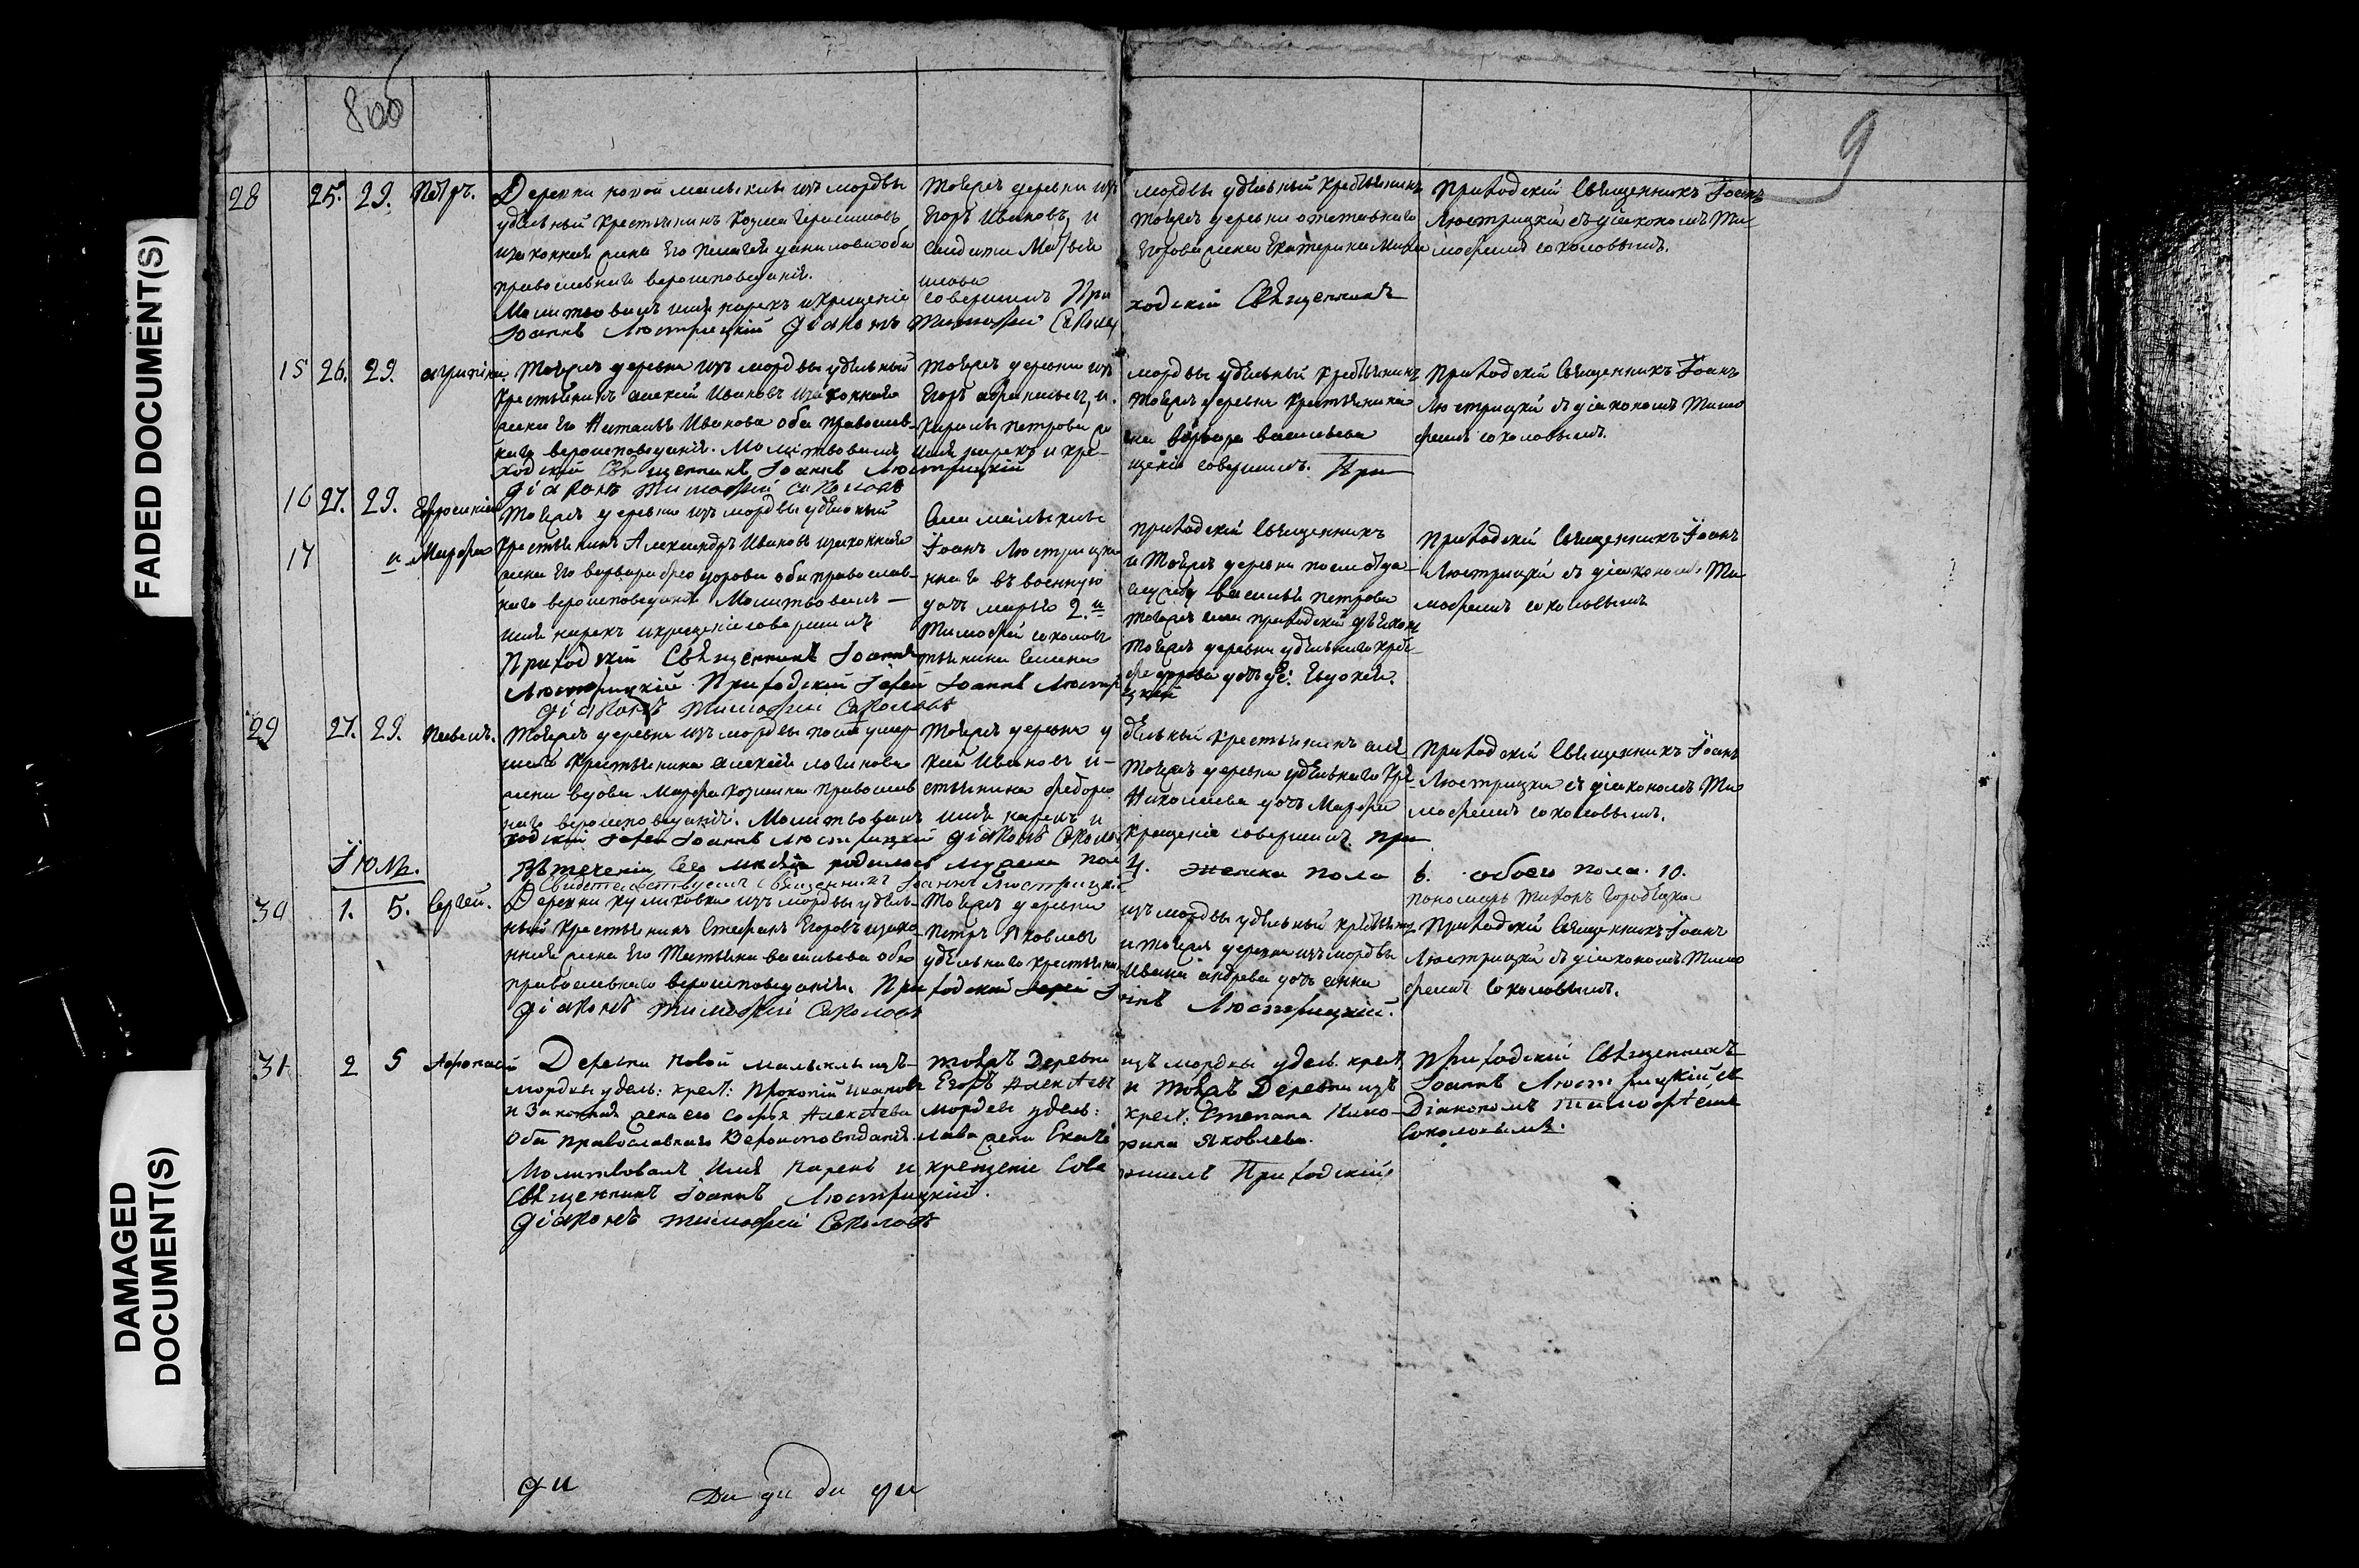 FADED DOCUMENT(S)
DAMAGED DOCUMENT(S)
8об
9
28 25. 29. Петръ.
Деревни новой малыклы изъ мордвы
удѣльный крестьянинъ Козма Герасимовъ
и законная жена его Пелагея данилова оба
православнаго вероисповеданія.
Молитвовалъ имя нарекъ и крещеніе
Іоаннъ Люстрицкій діаконъ Тимоѳей Соколовъ
тоежъ деревни изъ
Егоръ Ивановъ, и
солдата Матвея
лова
совершилъ При
мордвы удѣльный крестьянинъ
тоежъ деревни отставнаго
Егорова жена Екатерина Михай
ходскій Священникъ
Приходскій Священникъ Іоанъ
Люстрицкій съ діакономъ Ти
моѳеемъ соколовымъ.
15 26. 29. агрипина
Тоежъ деревни изъ мордвы удѣльный
крестьянинъ алексей Ивановъ и законная
жена его Наталья Иванова оба православ-
наго вероисповеданія. Молитвовалъ имя нарекъ и кре-
ходскій Священникъ Іоаннъ Люстрицкій
діаконъ Тимоѳей Соколовъ
тоежъ деревни изъ
Егоръ
мордвы удѣльный крестьянинъ
тоежъ деревни крестьянина
на варвара васильева
щеніе совершилъ. При
Приходскій Священникъ Іоанъ
Люстрицкій съ діакономъ Тимо
ѳеемъ соколовымъ.
16 27. 29. Ефросинія
17 и Марѳа
Тоежъ деревни изъ мордвы удѣльный
крестьянинъ Александръ Ивановъ и законная
жена его варвара ѳеодорова оба православ-
наго вероисповеданія Молитвовалъ
имя нарекъ и крещеніе совершилъ
Приходскій Священникъ Іоаннъ
Люстрицкій. Приходскій Іерей Іоаннъ Люстри
діаконъ Тимоѳей Соколовъ
Села малыклы
Іоанъ Люстрицкій
ннаго въ военную
дочь марья 2.я
Тимоѳей соколовъ
тьянина
приходскій Священникъ
и тоежъ деревни после отда
службу василья петрова
тоежъ села приходскій дьяконъ
тоежъ деревни удѣльнаго крес-
ѳедорова дочь Евдокея.
цкій
Приходскій Священникъ Іоанъ
Люстрицкій съ діакономъ Ти
моѳеемъ соколовымъ
29 27. 29. Павелъ.
Тоежъ деревни изъ мордвы после умер-
шаго крестьянина алексея логинова
жена вдова Марѳа козмина православ
наго вероисповеданія. Молитвовалъ имя нарекъ и
ходскій Іерей Іоаннъ Люстрицкій діаконъ Соколов
тоежъ деревни у
кей Ивановъ и
стьянина Ѳедора
дѣльный крестьянинъ але
тоежъ деревни удѣльнаго кре
Николаева дочь Марѳа
крещеніе совершилъ при
Приходскій Священникъ Іоанъ
Люстрицкій съ діакономъ Ти
моѳеемъ соколовымъ.
Въ теченіи сего месяца родилось мужска пол 4. женска пола 6. обоего пола. 10.
Свидетельствуемъ Священникъ Іоаннъ Люстрицкій
пономарь Титовъ Городецкій
Іюль.
30 1. 5. Сергей.
Деревни куликовки изъ мордвы удѣль-
ный крестьянинъ Стефанъ Егоровъ и зако-
нная жена его Татьяна васильева оба
православнаго вероисповеданія. Приходскій Іерей І
діаконъ Тимоѳей Соколовъ
тоежъ деревни
Петръ Яковлевъ
удѣльнаго крестьянина
изъ мордвы удѣльный крестьянинъ
и тоежъ деревни изъ мордвы
Ивана андрева дочь анна
оаннъ Люстрицкій.
Приходскій Священникъ Іоанъ
Люстрицкій съ діакономъ Тимо
ѳеемъ соколовымъ.
31 2 5 Аѳонасій
Деревни Новой Малыклы изъ-
мордвы удель: крест: Прокопій Ивановъ
и Законная жена его Софья Алексѣева
Оба Православнаго Вероисповѣданія.
Молитвовалъ Имя Нарекъ и крещеніе Сове
Священникъ Іоаннъ Люстрицкій.
діаконъ Тимоѳей Соколовъ
тоежъ Деревни
Егоръ Алексѣевъ
мордвы удель:
лаева жена Екате
изъ мордвы удель. крест.
и тоежъ Деревни изъ
крест: Степана Нико-
рина Яковлева.
ршилъ Приходскій
Приходскій Священникъ
Іоаннъ Люстрицкій съ
Діакономъ Тимоѳѣемъ
Соколовымъ.
ди
Ди ди ди ди